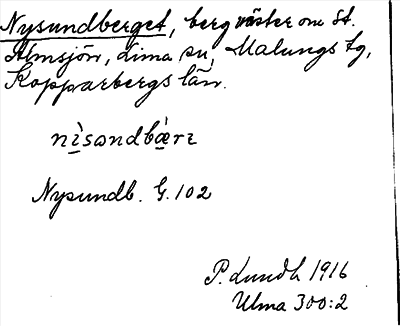 Nysundberget, berg väster om St.
Almsjön, Lima sn, Malungs tg,
Kopparbergs län.
nìsəndbæ̀rɩ
Nysundb. G. 102
P. Lundh 1916
Ulma 300:2